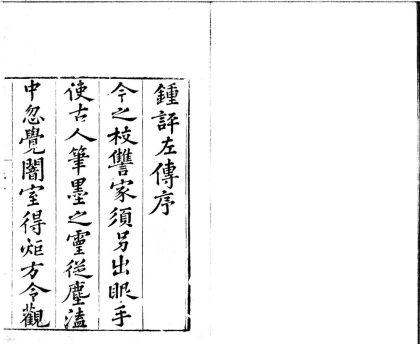 鍾評左傳序
今之校讐家須另出眼手
使古人筆墨之靈從塵溘
中忽覺闇室得炬方令觀